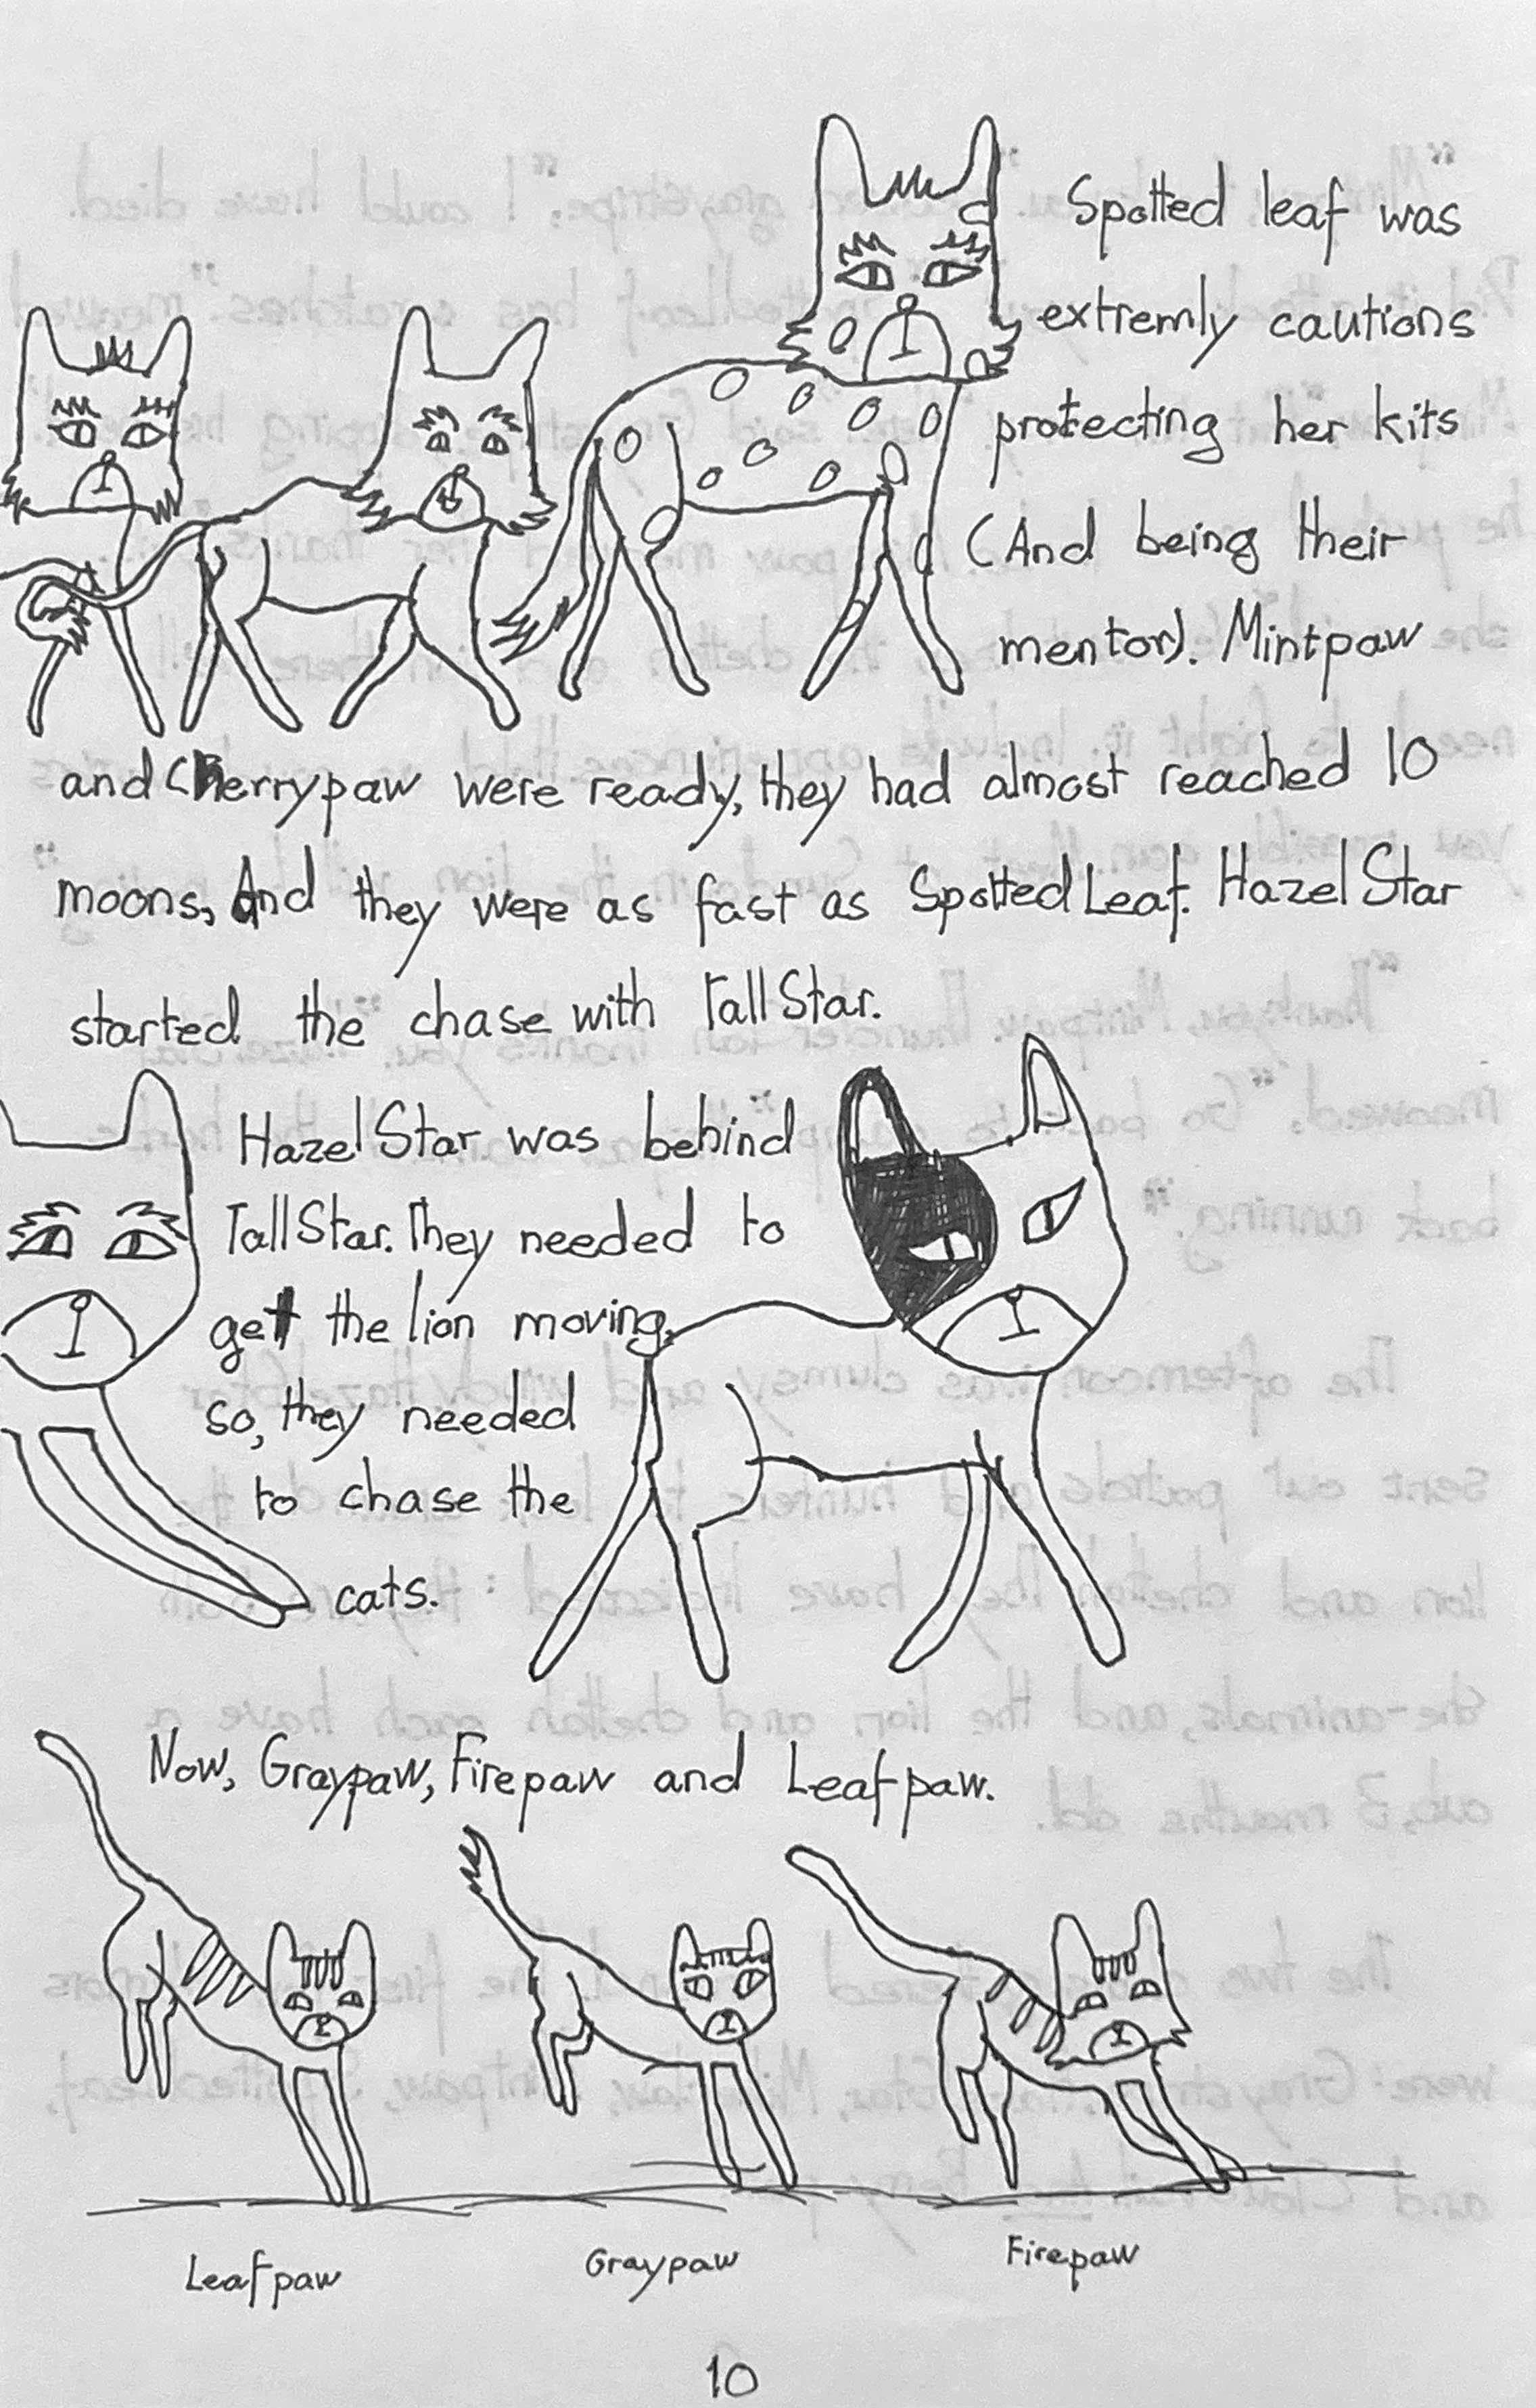 Spotted leaf was
extremly cautions
protecting her kits
(And being their
mentor). Mintpaw
and Cherrypaw were ready, they had almost reached 10
moons, And they were as fast as Spotted Leaf. Hazel Star
started the chase with Tall Star.
Hazel Star was behind
Tall Star. They needed to
get the lion moving,
so, they needed
to chase the
cats.
Now, Graypaw, Firepaw and Leafpaw.
Leafpaw
Graypaw
Firepaw
10